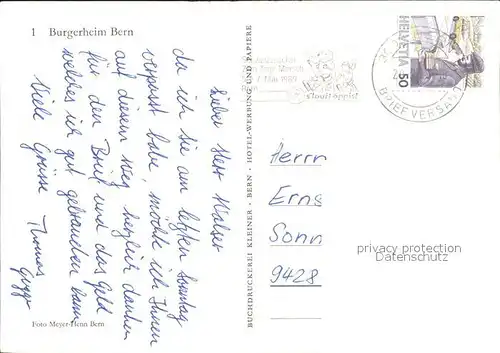 1 Burgerheim Bern
Lieber Herr Walser
da ich Sie am letzten Sonntag
verpasst habe, möchte ich Ihnen
auf diesem Weg herzlich danken
für den Brief und das Geld
welches ich gut gebrauchen kann
Viele Grüsse Thomas
Foto Meyer-Henn Bern
BUCHDRUCKEREI KLEINER · BERN · HOTEL-WERBUNG UND PAPIERE
HELVETIA 50
BRIEFVERSAND
Herrn
Erns
Sonn
9428
privacy protection
Datenschutz